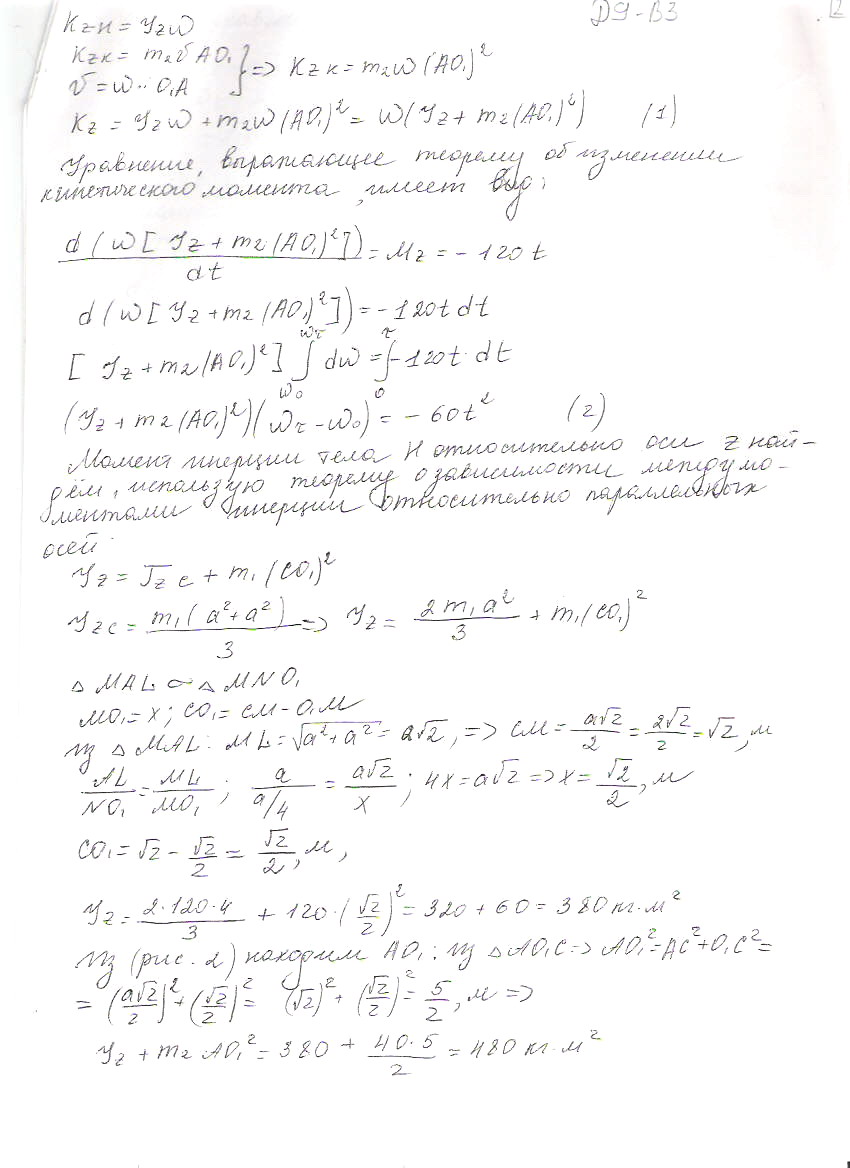 Д9-В3 2
Kz н = Jzω
Kzк = m₂v AO₁
v = ω·· O₁A } => Kzк = m₂ω(AO₁)²
Kz = Jzω + m₂ω(AO₁)² = ω(Jz + m₂(AO₁)²) (1)
Уравнение, выражающее теорему об изменении
кинетического момента, имеет вид:
d(ω[Jz + m₂(AO₁)²])/dt = Mz = -120t
d(ω[Jz + m₂(AO₁)²]) = -120t dt
[Jz + m₂(AO₁)²] ∫_{ω₀}^{ωτ} dω = ∫_{0}^{τ} -120t·dt
(Jz + m₂(AO₁)²)(ωτ - ω₀) = -60t² (2)
Момент инерции тела Н относительно оси z най-
дём, использую теорему о зависимости между мо-
ментами инерции относительно параллельных
осей
Jz = Jz c + m₁(CO₁)²
Jzc = m₁(a²+a²)/3 => Jz = 2m₁a²/3 + m₁(CO₁)²
△MAL ∞ △MNO₁
MO₁ = x; CO₁ = CM - O₁M
Из △MAL: ML = √(a²+a²) = a√2, => CM = a√2/2 = 2√2/2 = √2, м
AL/NO₁ = ML/MO₁; a/(a/4) = a√2/x; 4x = a√2 => x = √2/2, м
CO₁ = √2 - √2/2 = √2/2, м,
Jz = 2·120·4/3 + 120·(√2/2)² = 320 + 60 = 380 кг·м²
Из (рис. 2) находим AO₁: Из △AO₁C => AO₁² = AC² + O₁C² =
= (a√2/2)² + (√2/2)² = (√2)² + (√2/2)² = 5/2, м =>
Jz + m₂ AO₁² = 380 + 40·5/2 = 480 кг·м²